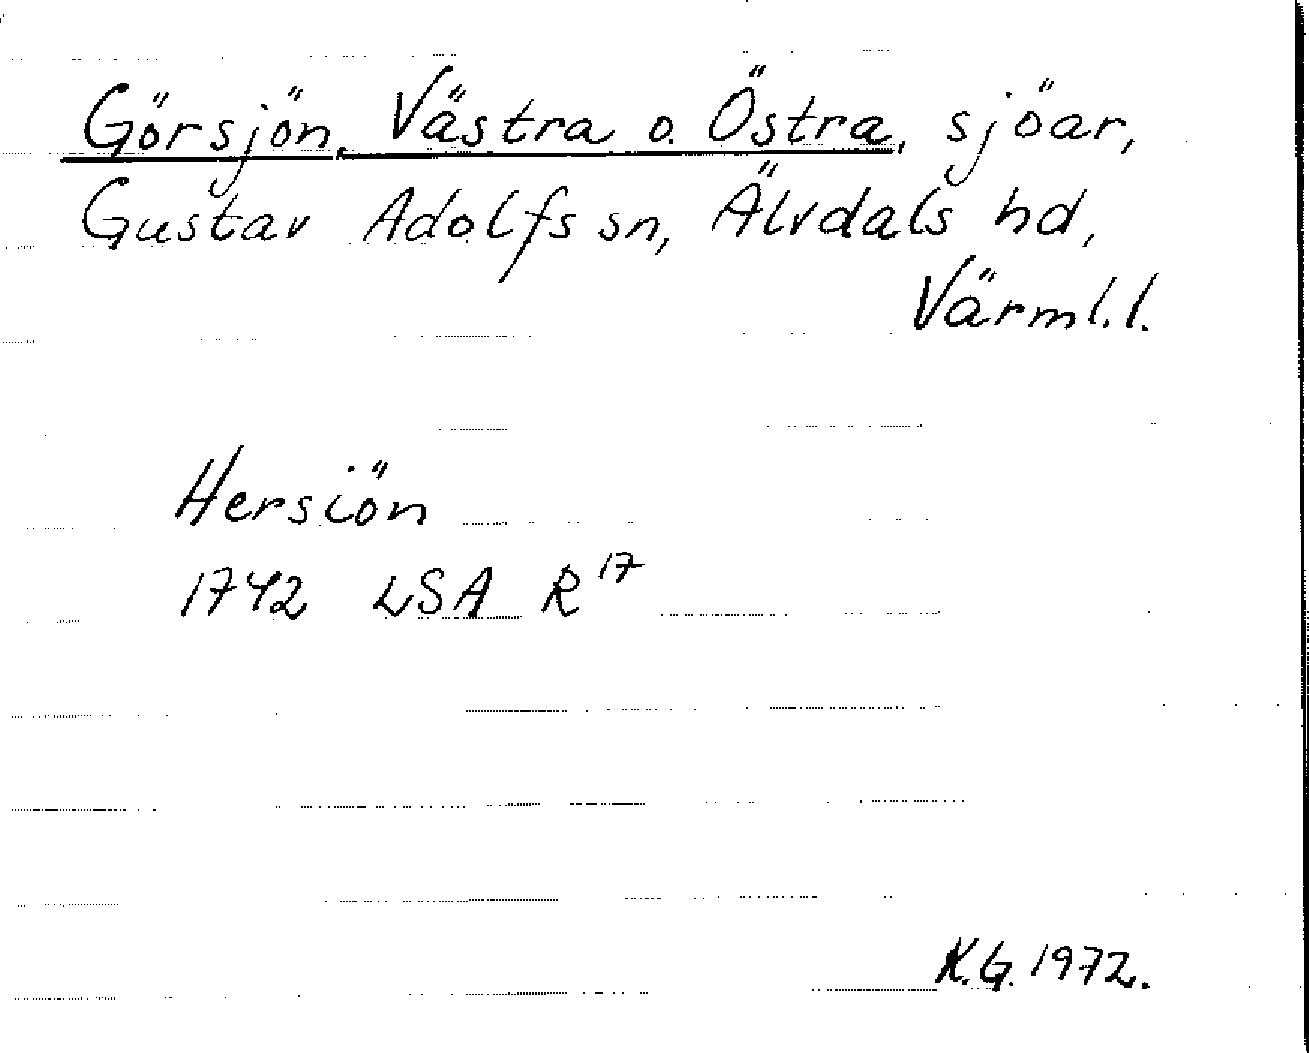 Görsjön, Västra o. Östra, sjöar,
Gustav Adolfs sn, Älvdals hd,
Värml. l.
Hersiön
1742 LSA R 17
K.G. 1972.